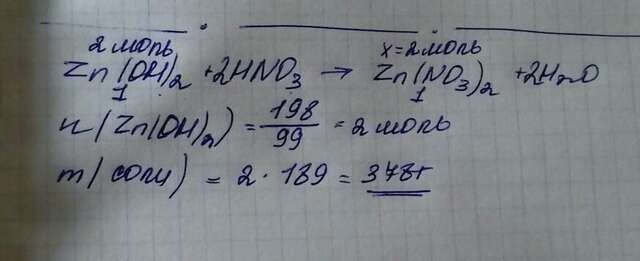 2 моль x = 2 моль
Zn(OH)₂ + 2HNO₃ → Zn(NO₃)₂ + 2H₂O
1 1
n(Zn(OH)₂) = 198/99 = 2 моль
m(соли) = 2 · 189 = 378г